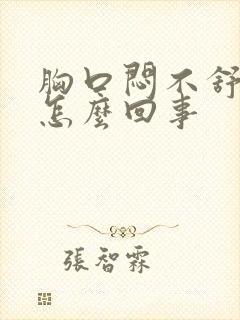 胸口悶不舒
怎麼回事
張智霖